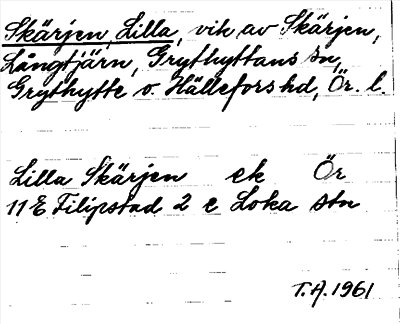 Skärjen, Lilla, vik av Skärjen,
Långtjärn, Grythyttans sn,
Grythytte o. Hällefors hd, Ör. l.
Lilla Skärjen ek Ör
11 E Filipstad 2 e Loka stn
T.A. 1961